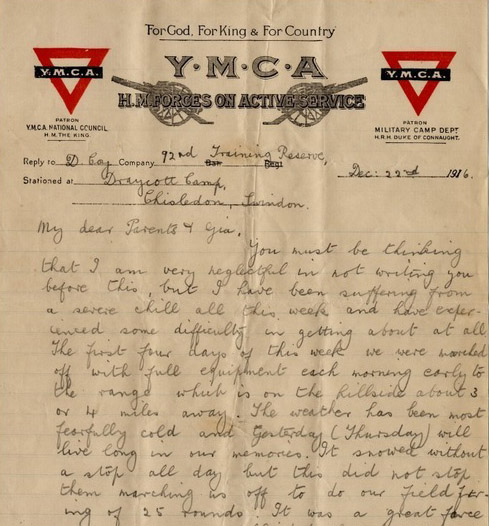 For God, For King & For Country
Y·M·C·A
H.M. FORCES ON ACTIVE SERVICE
Y.M.C.A.
PATRON
Y.M.C.A. NATIONAL COUNCIL
H.M. THE KING.
Y.M.C.A.
PATRON
MILITARY CAMP DEPT
H.R.H. DUKE OF CONNAUGHT.
Reply to D Coy Company 92nd Training Reserve,
Bat. Regt
Stationed at Draycott Camp, Dec: 22nd 1916.
Chisledon, Swindon.
My dear Parents & Gia.
You must be thinking
that I am very neglectful in not writing you
before this, but I have been suffering from
a severe chill all this week and have exper-
ienced some difficulty in getting about at all
The first four days of this week we were marched
off with full equipment each morning early to
the range which is on the hillside about 3
or 4 miles away. The weather has been most
fearfully cold and yesterday (Thursday) will
live long in our memories. It snowed without
a stop all day but this did not stop
them marching us off to do our field fir-
ing of 25 rounds. It was a great force